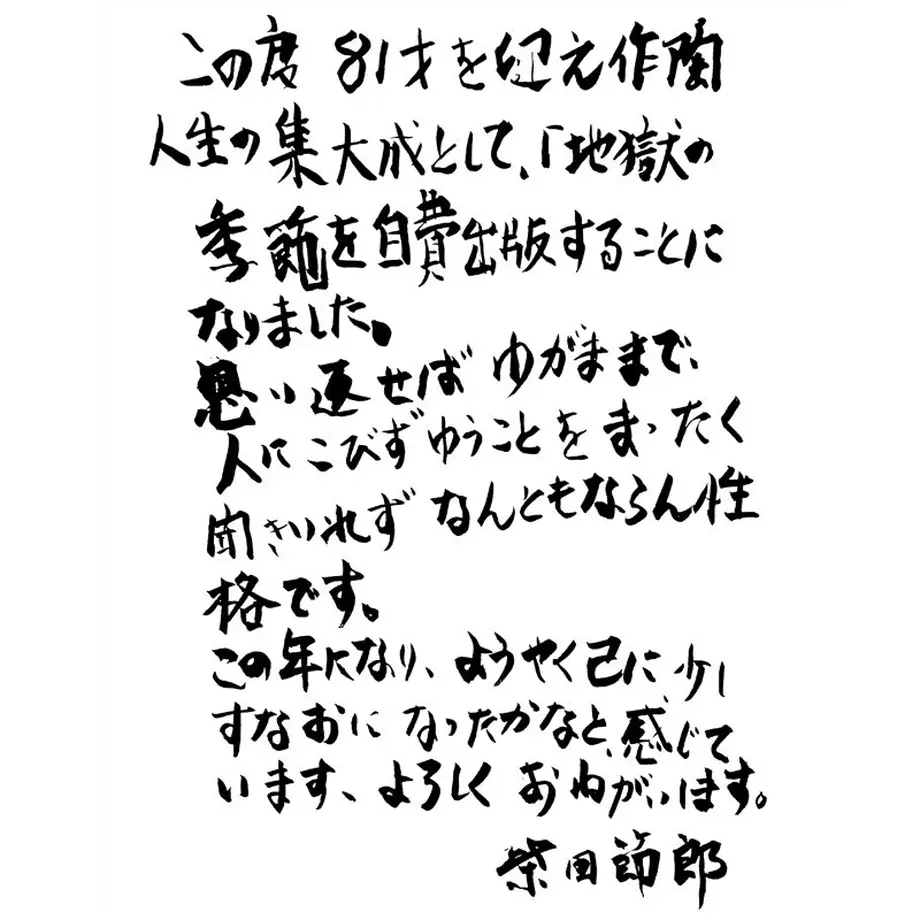 この度 81才を迎え作陶
人生の集大成として、「地獄の
季節を自費出版することに
なりました。
思い返せば ゆがままで、
人にこびず ゆうことを まったく
聞きいれず なんともならん性
格です。
この年になり、ようやく己に 少し
すなおに なったかなと、感じて
います、よろしく おねがいします。
柴田節郎